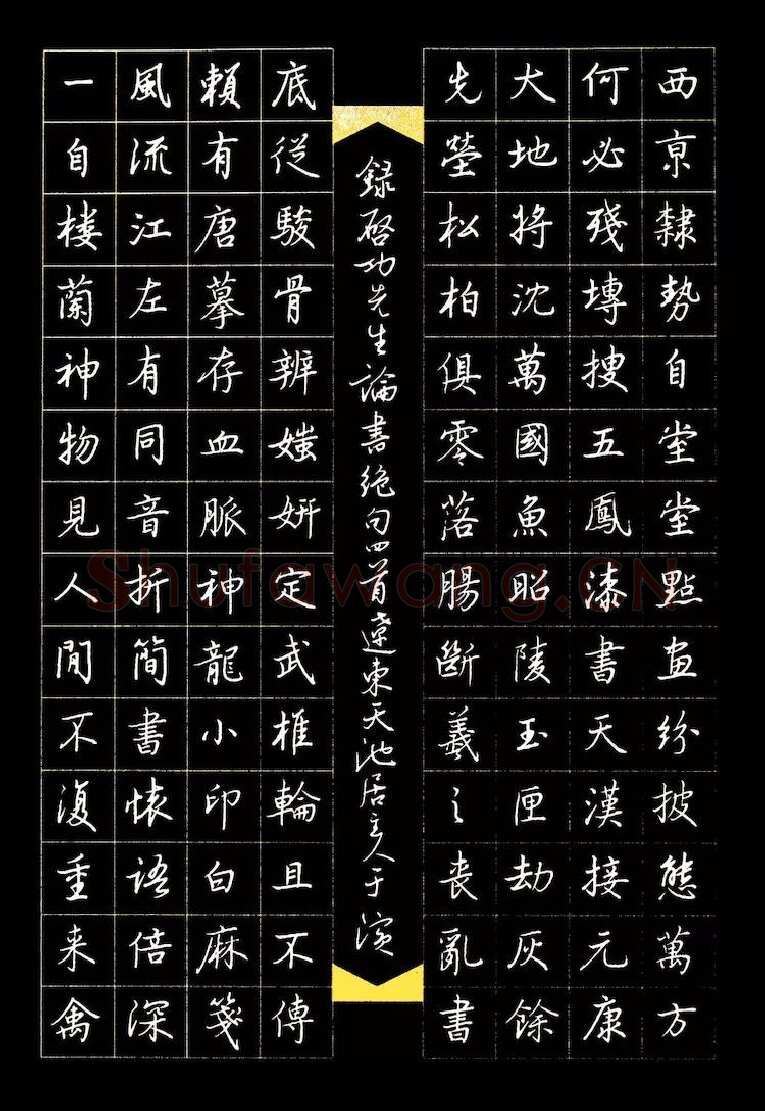 西亰隸勢自堂堂點画紛披態萬方
何必殘塼搜五鳳漆書天漢接元康
大地將沈萬國魚昭陵玉匣劫灰餘
先塋松柏俱零落腸斷羲之喪亂書
録啓功先生論書絶句四首遼東天池居主人于
底從駿骨辨媸妍定武椎輪且不傳
賴有唐摹存血脈神龍小印白麻箋
風流江左有同音折簡書懐語倍深
一自楼蘭神物見人間不復重来禽
Shufawang.CN